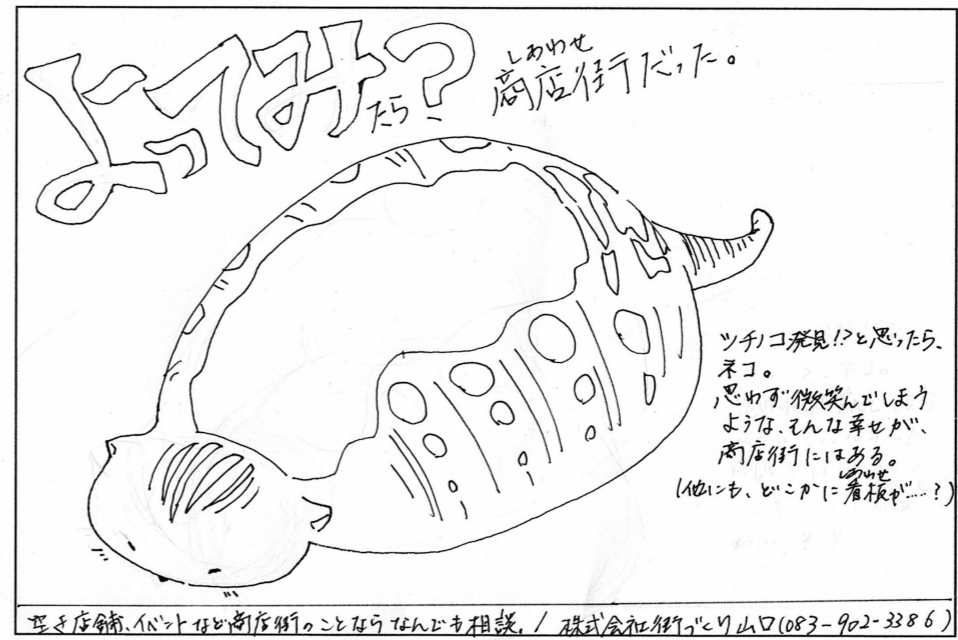 よってみたら?
しあわせ
商店街だった。
ツチノコ発見!?と思ったら、
ネコ。
思わず微笑んでしまう
ような、そんな幸せが、
商店街にはある。
しあわせ
(他にも、どこかに看板が……?)
空き店舗、イベントなど商店街のことならなんでも相談。/ 株式会社街づくり山口(083-902-3386)